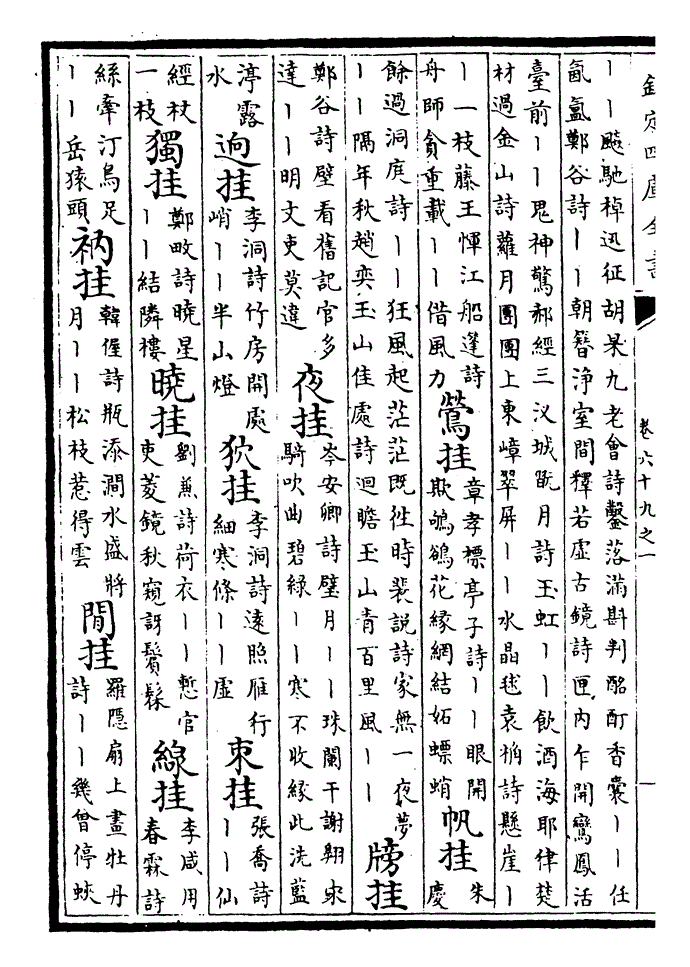 欽定四庫全書
卷六十九之一
一
丨丨颷馳棹迅征胡杲九老會詩鑿落滿斟判酩酊香囊丨丨任
氤氲鄭谷詩丨丨朝簪浄室間釋若虛古鏡詩匣内乍開鸞鳳活
臺前丨丨鬼神驚郝經三汊城翫月詩玉虹丨丨飲酒海耶律楚
材過金山詩蘿月團團上東嶂翠屏丨丨水晶毬袁桷詩懸崖丨
丨一枝藤王惲江船篷詩
舟師貪重載丨丨借風力
鶯挂
章孝標亭子詩丨丨眼開
欺鴝鵒花緣網結妬螵蛸
帆挂
朱
慶
餘過洞庭詩丨丨狂風起茫茫既徃時裴説詩家無一夜夢
丨丨隔年秋趙奕玉山佳處詩迴瞻玉山青百里風丨丨
牓挂
鄭谷詩壁看舊記官多
達丨丨明文吏莫違
夜挂
岑安卿詩璧月丨丨珠闌干謝翱宋
騎吹曲碧緑丨丨寒不收縁此洗藍
渟露
水
逈挂
李洞詩竹房開處
峭丨丨半山燈
狖挂
李洞詩遠照雁行
細寒條丨丨虚
束挂
張喬詩
丨丨仙
經杖
一枝
獨挂
鄭畋詩曉星
丨丨結隣樓
曉挂
劉兼詩荷衣丨丨慙官
吏菱鏡秋窺訝鬢髹
線挂
李咸用
春霖詩
絲牽汀鳥足
丨丨岳猿頭
衲挂
韓偓詩瓶添澗水盛將
月丨丨松枝惹得雲
閒挂
羅隱扇上畫牡丹
詩丨丨幾曾停蛺